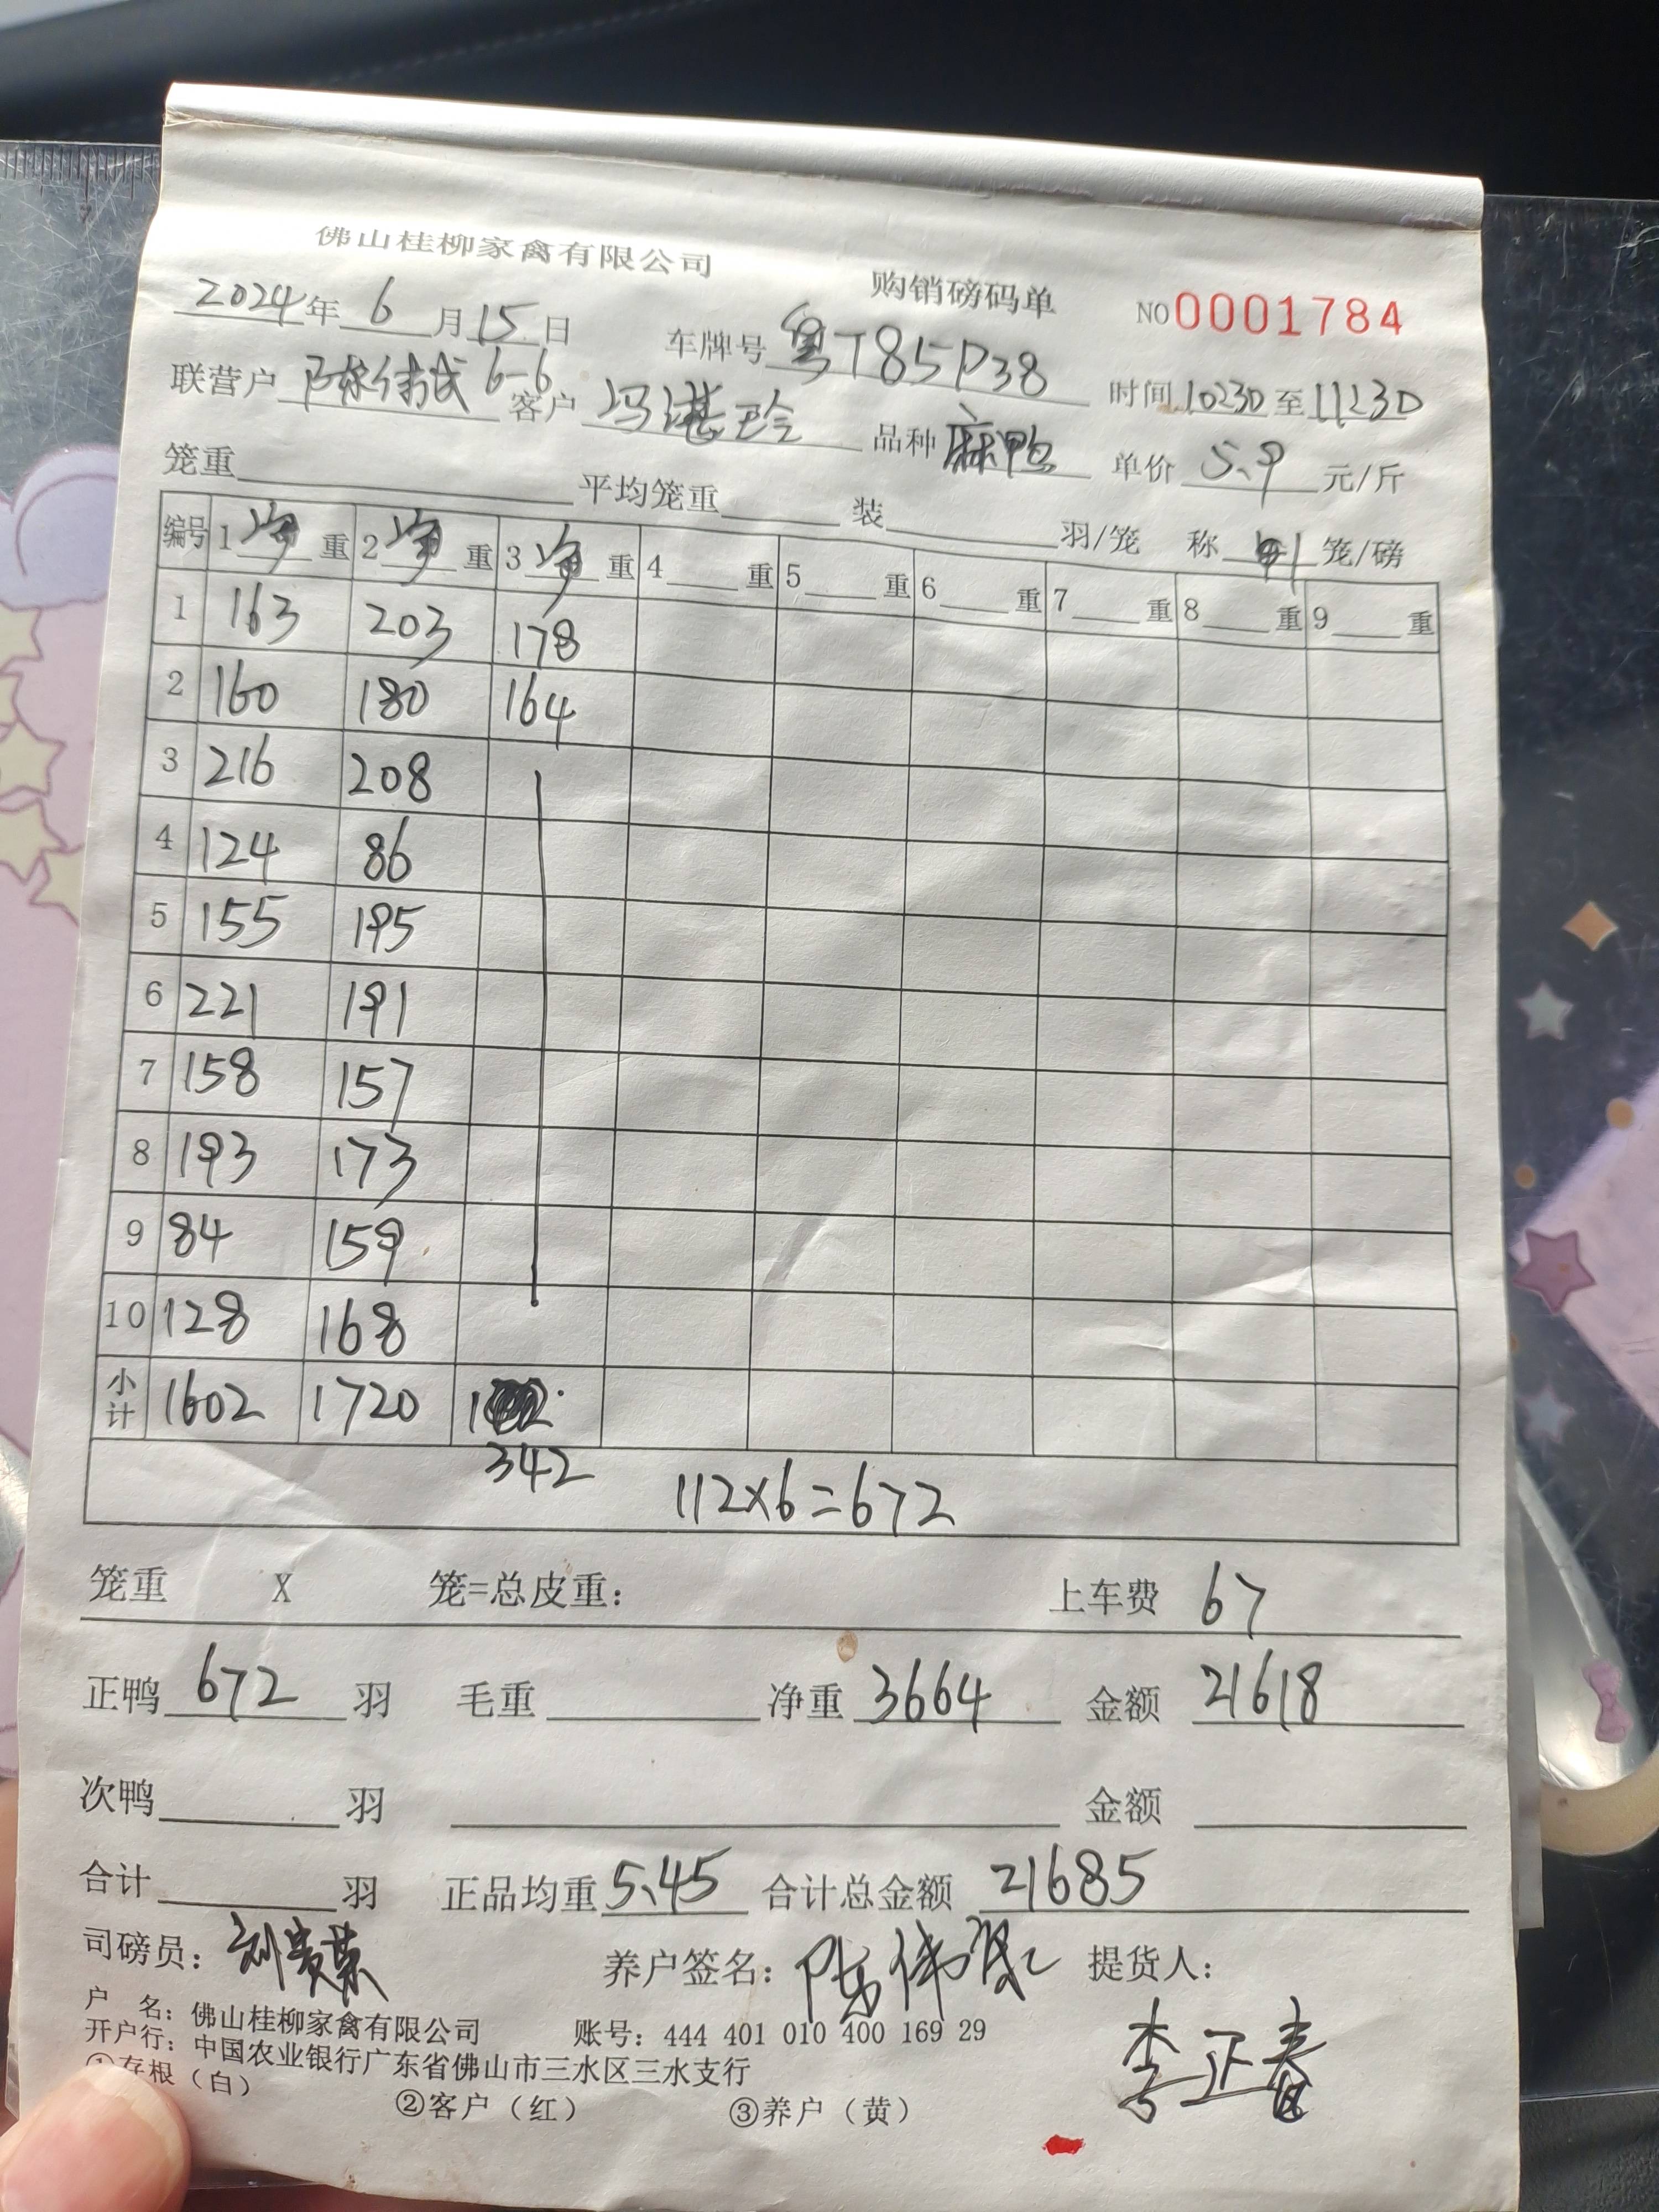 佛山桂柳家禽有限公司 购销磅码单 NO 0001784
2024年6月15日 车牌号 粤T85P38 时间 10:30 至 11:30
联营户 6-6 客户 冯湛玲 品种 麻鸭 单价 5.9 元/斤
笼重 平均笼重 装 羽/笼 称 1 笼/磅
编号 1 净 重 2 净 重 3 净 重 4 重 5 重 6 重 7 重 8 重 9 重
1 163 203 178
2 160 180 164
3 216 208
4 124 86
5 155 195
6 221 191
7 158 157
8 193 173
9 84 159
10 128 168
小计 1602 1720
342
112×6=672
笼重 X 笼=总皮重: 上车费 67
正鸭 672 羽 毛重 净重 3664 金额 21618
次鸭 羽 金额
合计 羽 正品均重 5.45 合计总金额 21685
司磅员: 养户签名: 提货人:
李正春
户 名: 佛山桂柳家禽有限公司 账号: 444 401 010 400 169 29
开户行: 中国农业银行广东省佛山市三水区三水支行
①存根(白) ②客户(红) ③养户(黄)